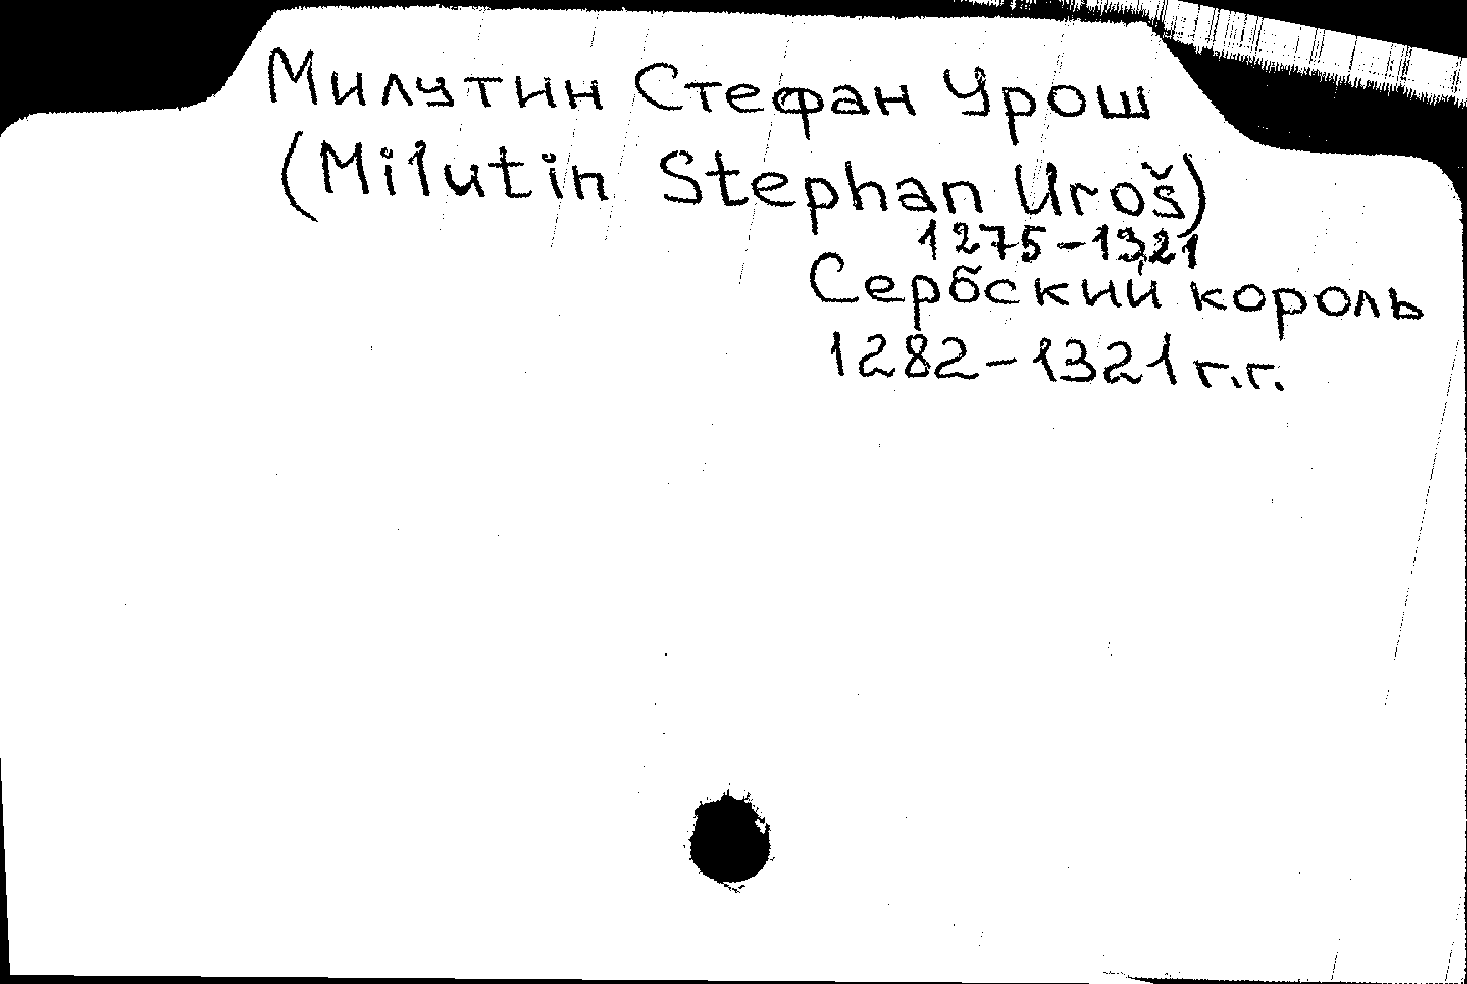 Милутин Стефан Урош
(Milutin Stephan Uroš)
1275-1321
Сербский король
1282-1321 г.г.